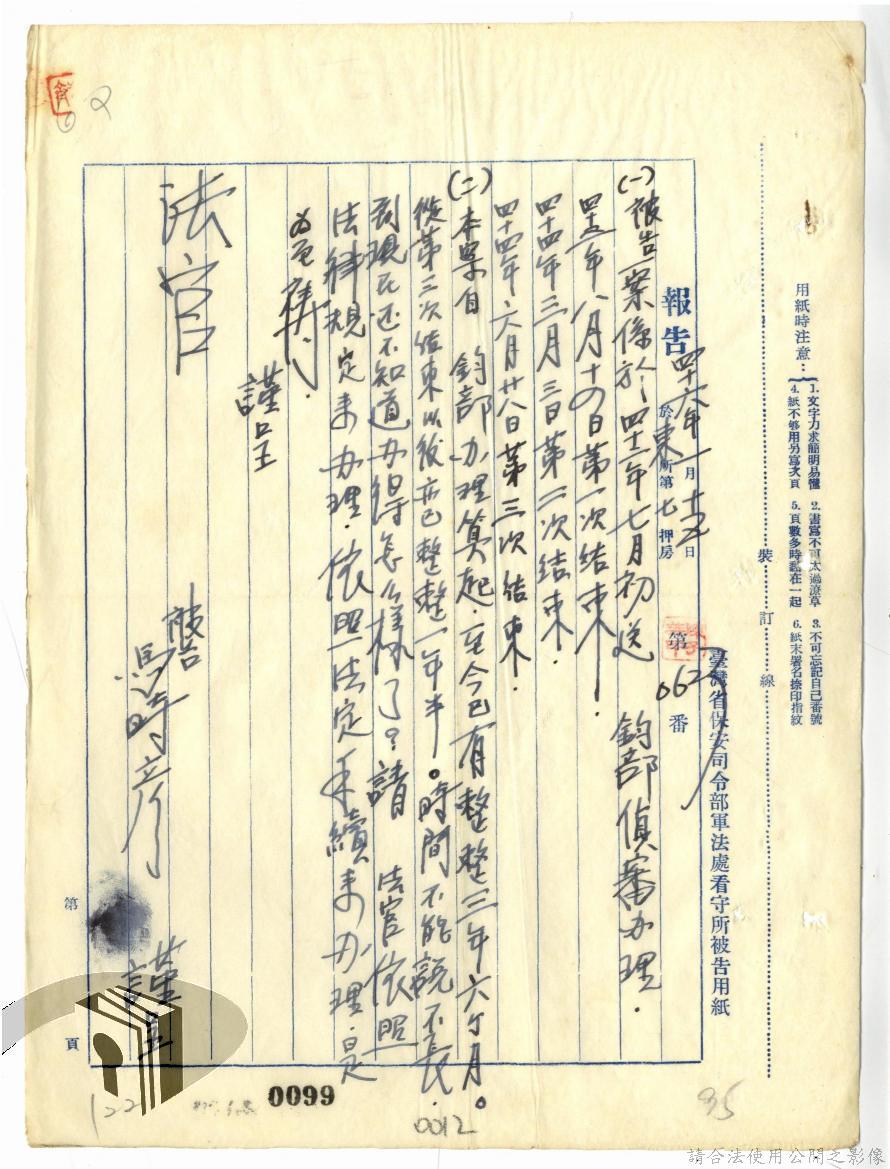 用紙時注意：
1. 文字力求簡明易懂 2. 書寫不可太過潦草 3. 不可忘記自己番號
4. 紙不够用另寫次頁 5. 頁數多時黏在一起 6. 紙末署名捺印指紋
裝訂線
臺灣省保安司令部軍法處看守所被告用紙
報告 四十六年一月十五日
於東所第七押房
第062番
(一)被告一案係於四十一年七月初送 鈞部偵審办理.
年八月十四日第一次結束.
四十四年三月三日第二次結束.
四十四年六月廿八日第三次結束.
(二)本案自 鈞部办理算起.至今已有整整三年六个月。
從第三次結束以後亦已整整一年半。時間不能說不長.
到現在还不知道办得怎么樣了?請 法官依照
法律規定來办理.依照法定手續來办理.是
為更禱.
謹呈
法官
被告 馮時彥 謹呈
第 頁
0099
0012
122
95
請合法使用公開之影像